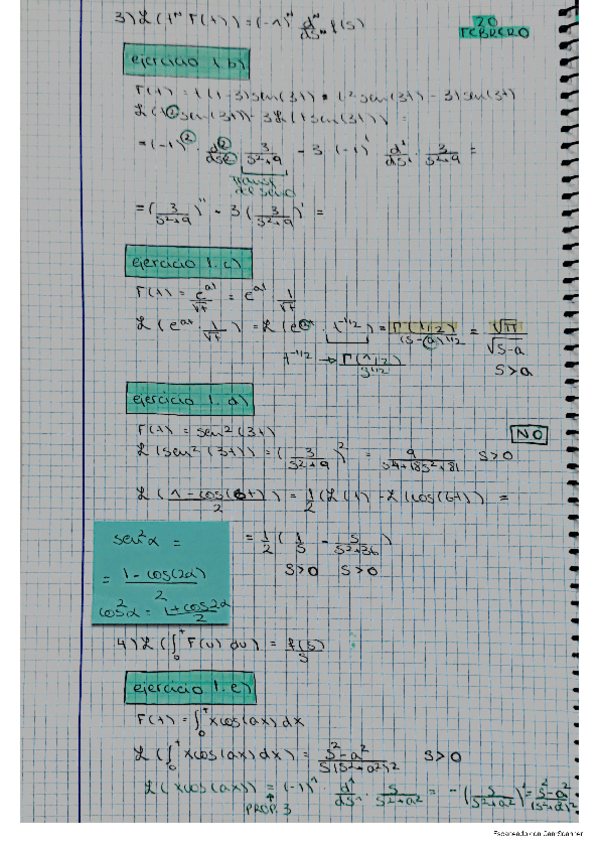 3) ℒ(tⁿ F(t)) = (-1)ⁿ dⁿ/dsⁿ f(s)
20 FEBRERO
ejercicio 1.b)
F(t) = t(t-3)sen(3t) = t²sen(3t) - 3tsen(3t)
ℒ(t²sen(3t)) - 3ℒ(tsen(3t)) =
= (-1)² · d²/ds² 3/(s²+9) - 3 (-1)¹ d¹/ds¹ · 3/(s²+9) =
= (3/(s²+9))'' - 3 (3/(s²+9))' =
ejercicio 1.c)
F(t) = e^at/√t = e^at · 1/√t
ℒ(e^at · 1/√t) = ℒ(e^at · t^-1/2) = Γ(1/2)/(s-a)^1/2 = √π/√(s-a)
t^-1/2 → Γ(1/2)/s^1/2
s>a
ejercicio 1.a)
F(t) = sen²(3t)
NO
ℒ(sen²(3t)) = (3/(s²+9))² = 9/(s⁴+18s²+81) s>0
ℒ((1-cos(6t))/2) = 1/2 (ℒ(1) - ℒ(cos(6t))) =
= 1/2 (1/s - s/(s²+36))
s>0 s>0
sen²α =
= (1-cos(2α))/2
cos²α = (1+cos2α)/2
4) ℒ(∫₀ᵗ F(u) du) = f(s)/s
ejercicio 1.e)
F(t) = ∫₀ᵗ xcos(ax) dx
ℒ(∫₀ᵗ xcos(ax) dx) = (s²-a²)/(s(s²+a²)²) s>0
ℒ(xcos(ax)) = (-1)¹ · d¹/ds¹ · s/(s²+a²) = -(s/(s²+a²))' = (s²-a²)/(s²+a²)²
PROP. 3
Escaneado con CamScanner